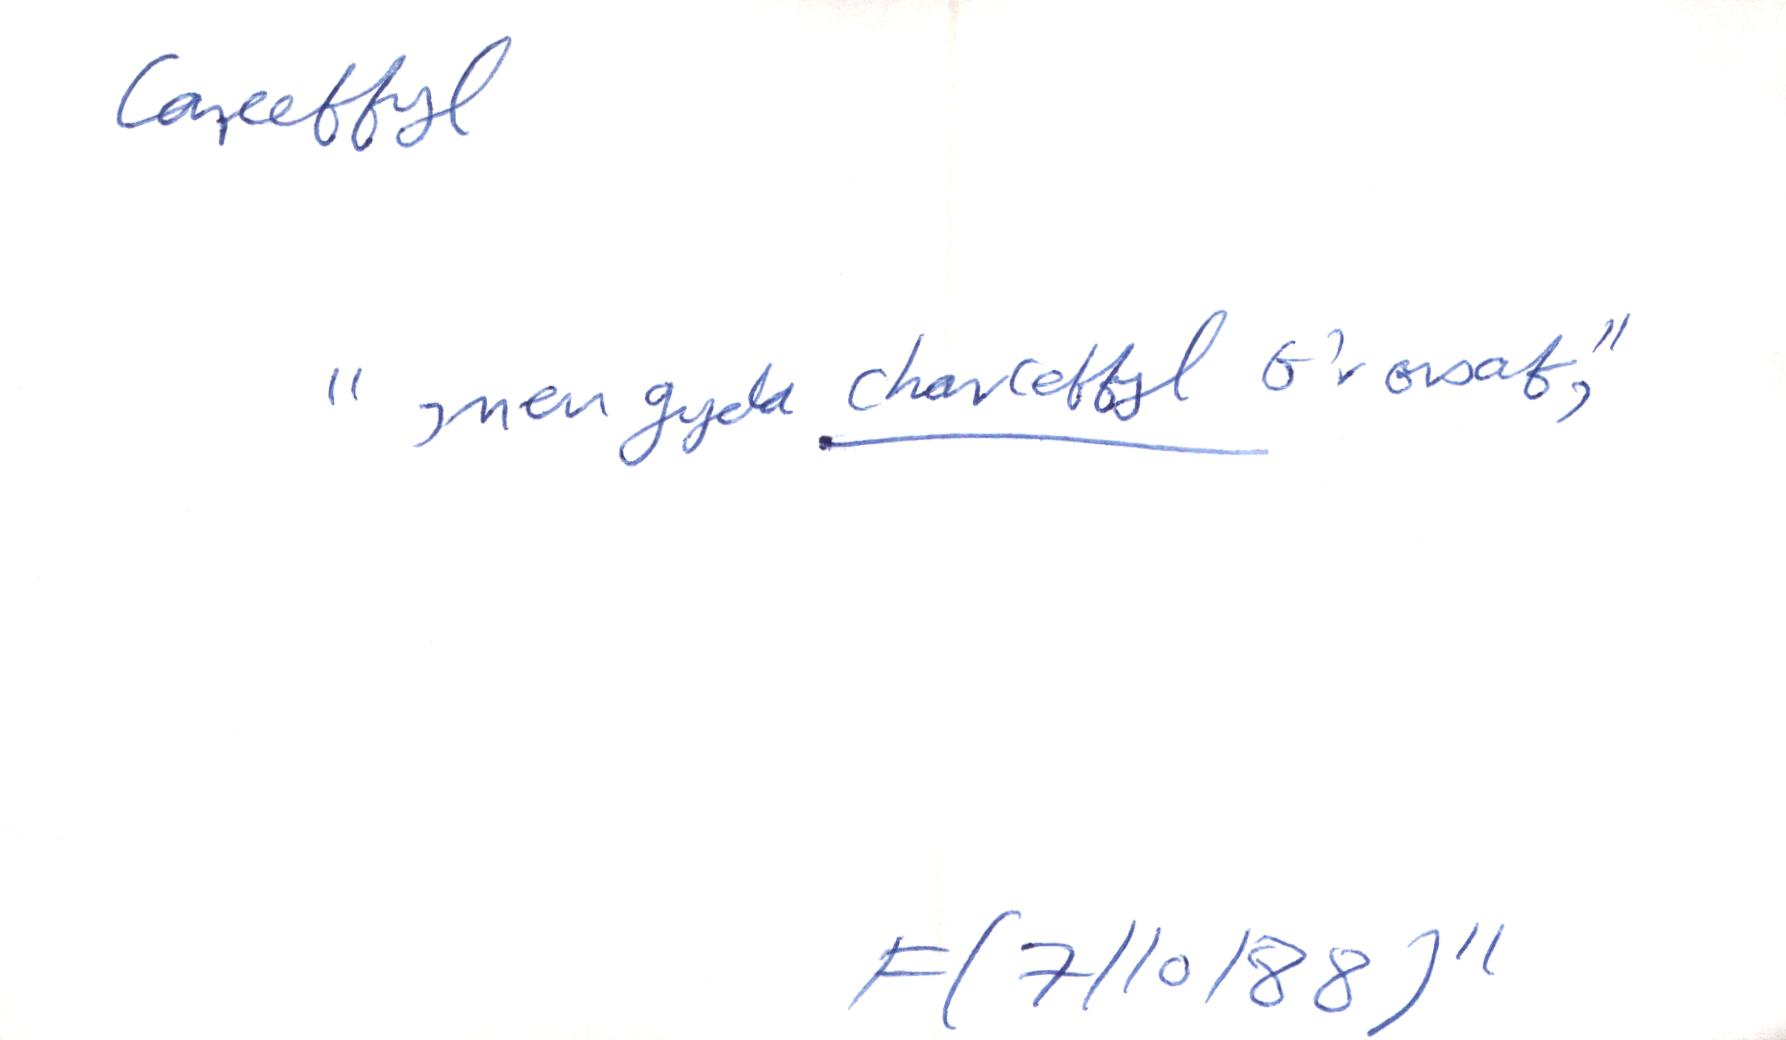 Carceffyl
" ymen gyda charceffyl o'r orsaf,"
F(7/10/88)"